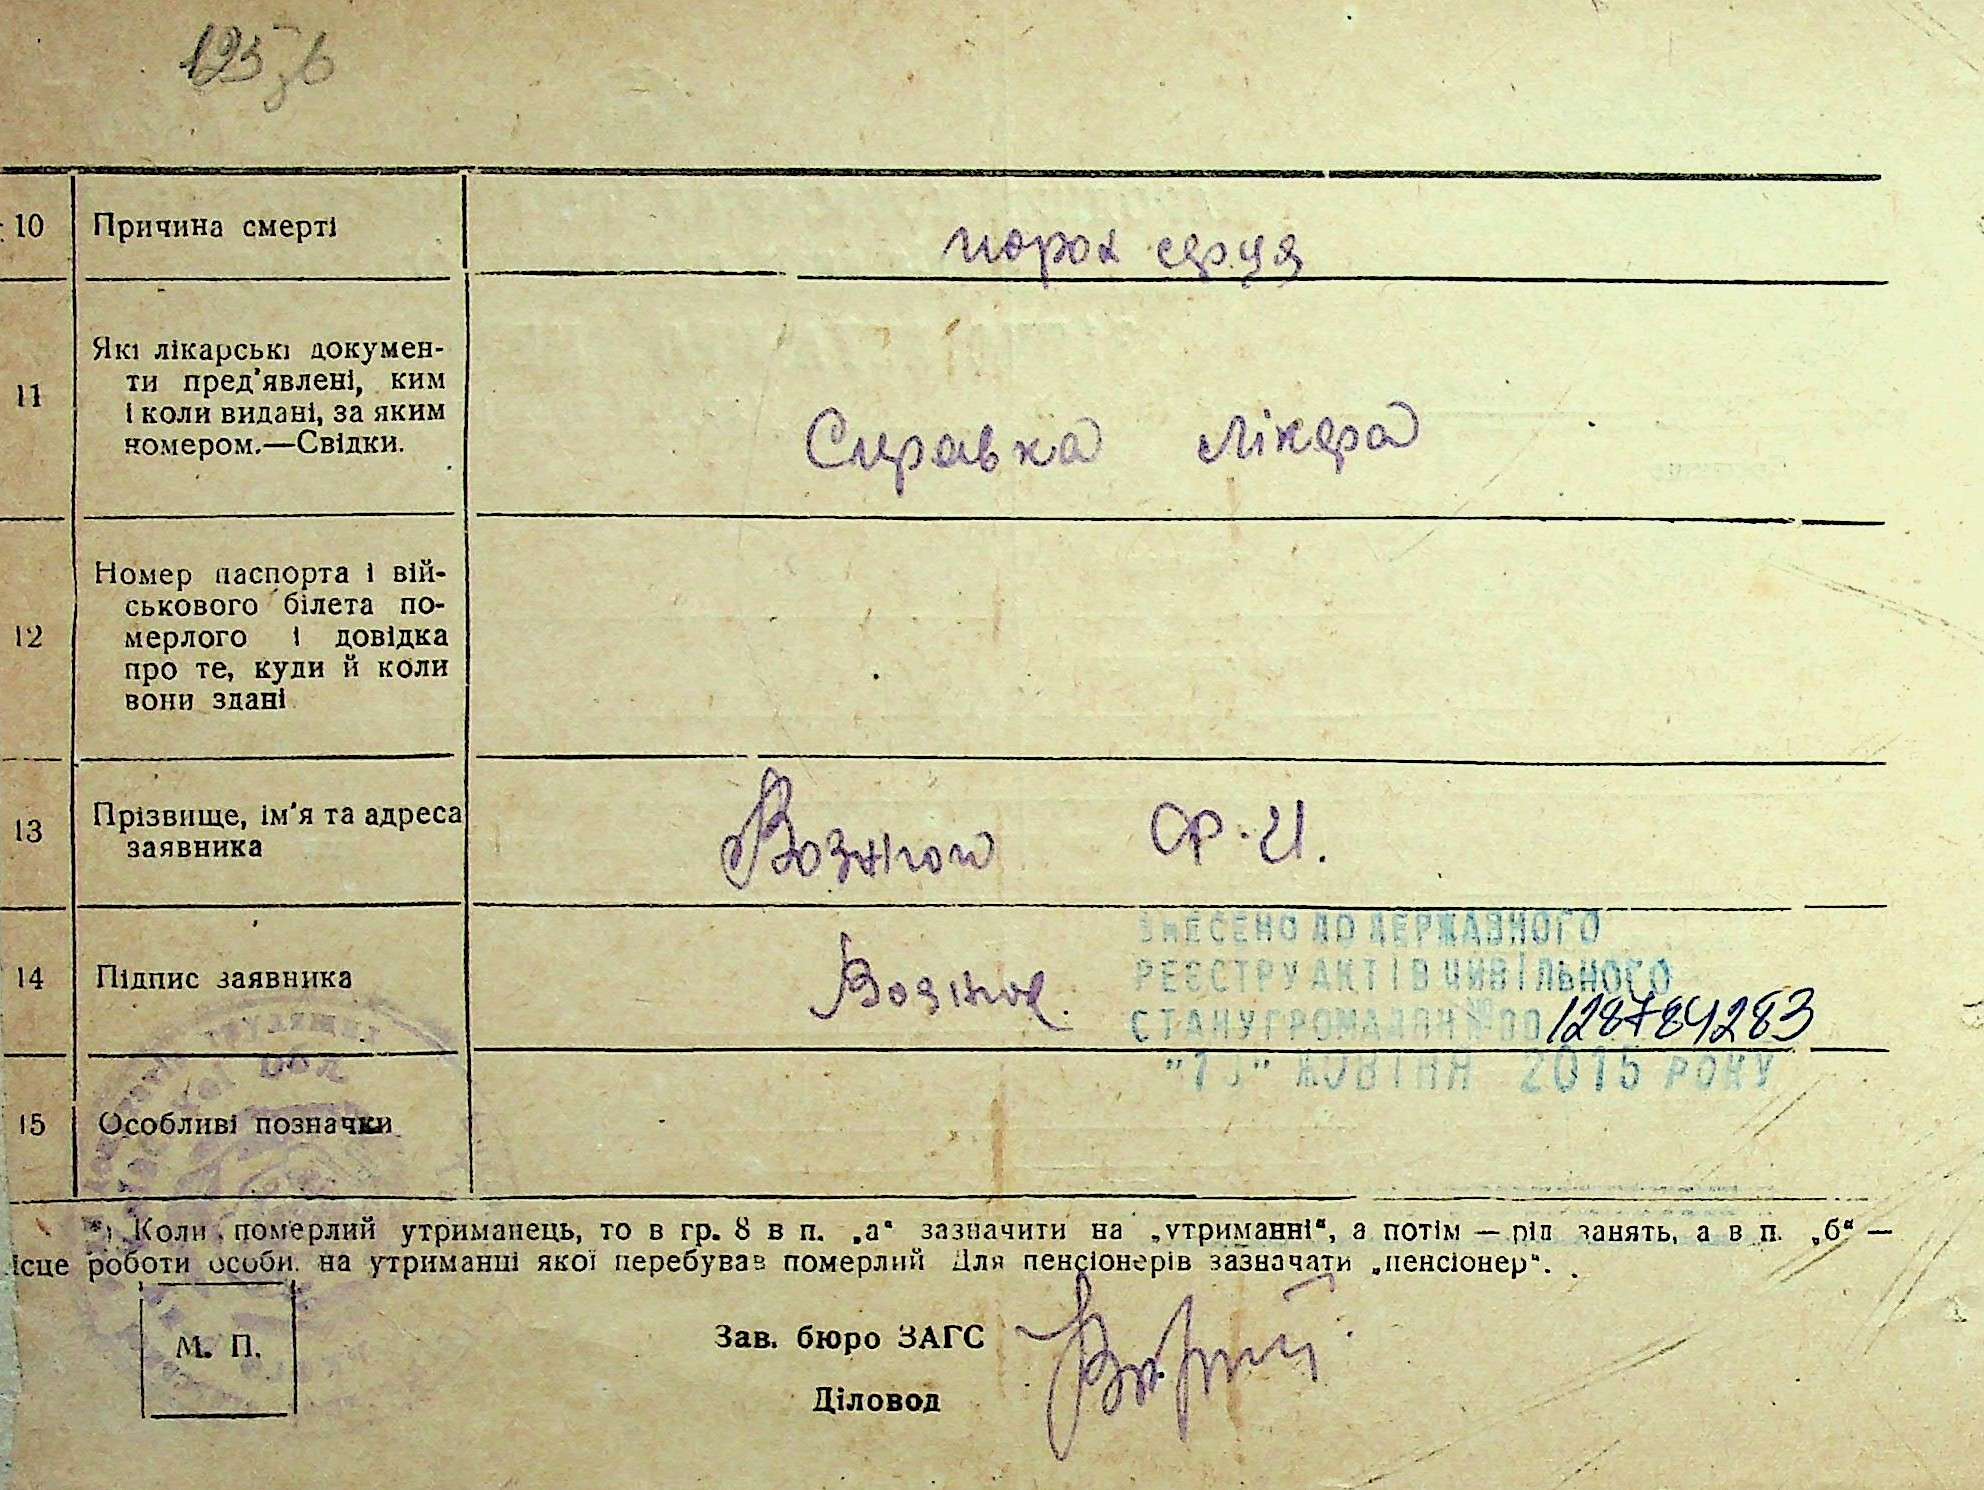 125 зв
10 Причина смерті порок серця
11 Які лікарські докумен-
ти пред'явлені, ким
і коли видані, за яким
номером.—Свідки.
Справка лікаря
12 Номер паспорта і вій-
ськового білета по-
мерлого і довідка
про те, куди й коли
вони здані
13 Прізвище, ім'я та адреса
заявника
Возної Ф. И.
ВНЕСЕНО ДО ДЕРЖАВНОГО
14 Підпис заявника
РЕЄСТРУ АКТІВ ЦИВІЛЬНОГО
СТАНУ ГРОМАДЯН № 00 128784283
ЖОВТНЯ 2015 РОКУ
15 Особливі позначки
*) Коли померлий утриманець, то в гр. 8 в п. „а“ зазначити на „утриманні“, а потім — рід занять, а в п. „б“ —
ісце роботи особи, на утриманні якої перебував померлий Для пенсіонерів зазначати „пенсіонер“.
М. П.
Зав. бюро ЗАГС
Діловод